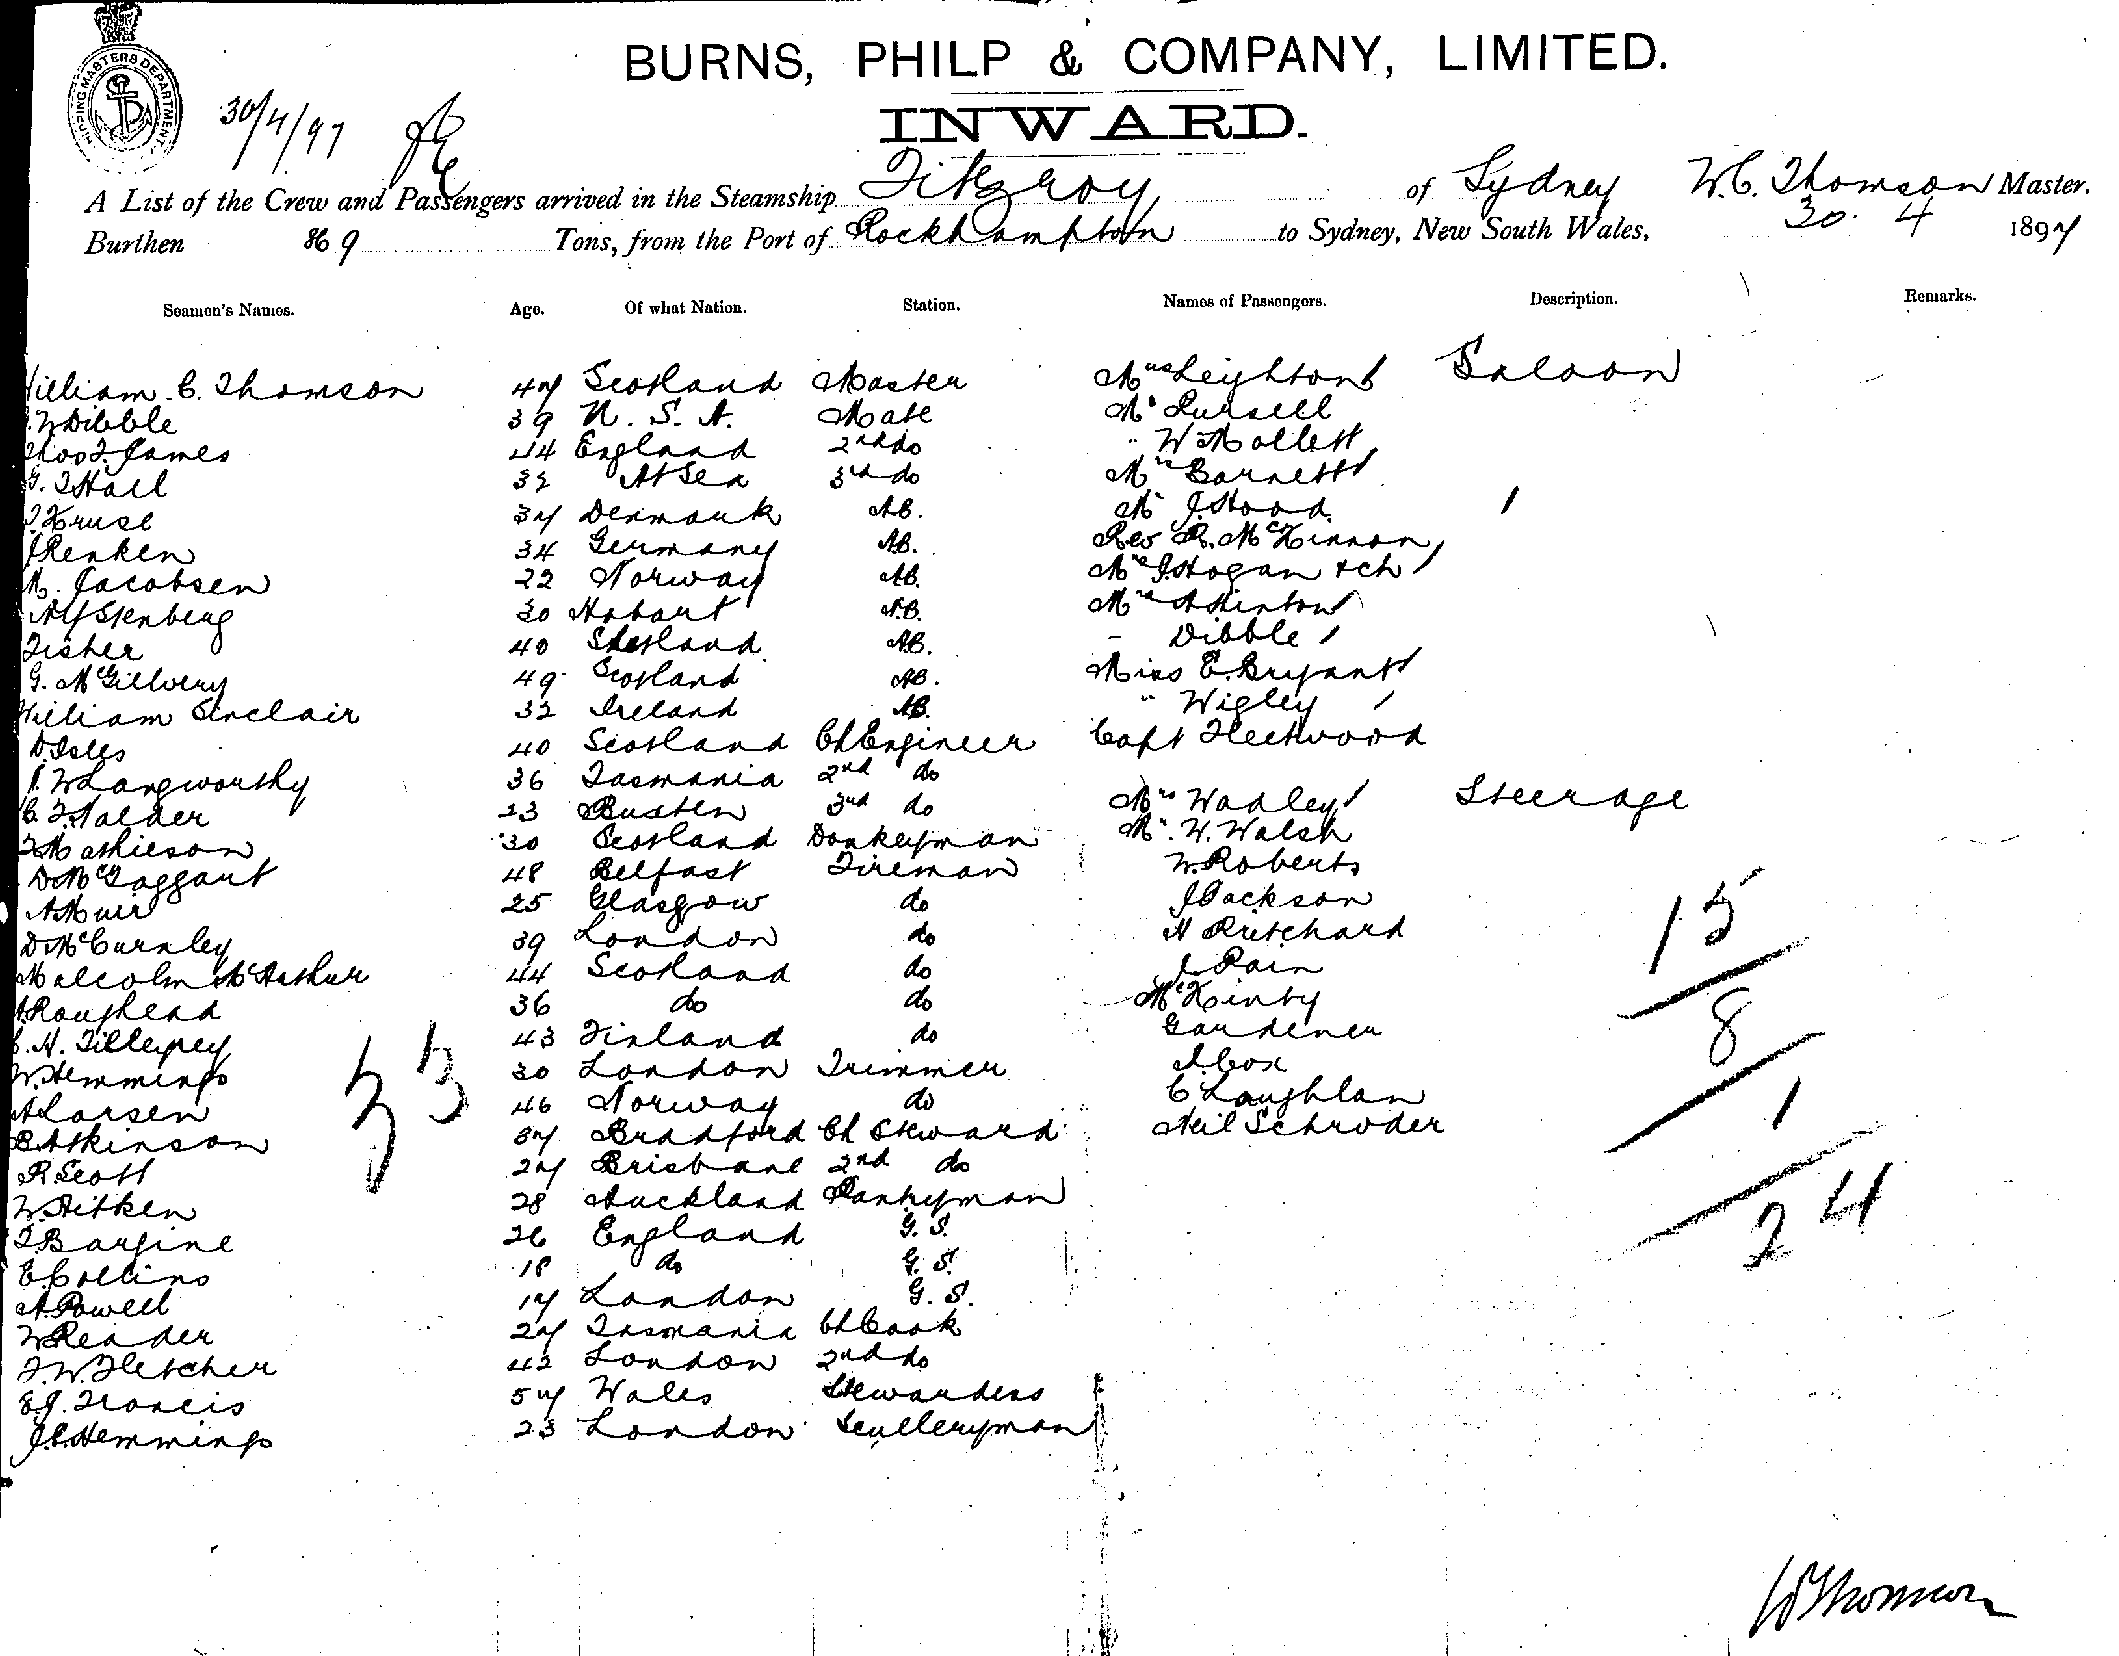 SHIPPING MASTERS DEPARTMENT
30/4/97
BURNS, PHILP & COMPANY, LIMITED.
INWARD.
A List of the Crew and Passengers arrived in the Steamship Fitzroy of Sydney W.C. Thomson Master.
Burthen 869 Tons, from the Port of Rockhampton to Sydney, New South Wales, 30. 4 1897
Seamen's Names. Age. Of what Nation. Station. Names of Passengers. Description. Remarks.
William C. Thomson 47 Scotland Master Mrs Leighton Saloon
W Dibble 39 U. S. A. Mate Mr Pursell
Thos F. James 44 England 2nd do " W Mollett
G. T Hall 32 At Sea 3rd do Mrs Barnett
Kruse 37 Denmark AB. Mr J Hood
J Renken 34 Germany AB. Rev R. McKinnon
M. Jacobsen 22 Norway AB. Mrs J Hogan & ch
Alf Stenberg 30 Hobart AB. Mrs A Hinton
Fisher 40 Shetland AB. " Dibble
G. McGillvery 49 Scotland AB. Miss E. Bryant
William Sinclair 32 Ireland AB. " Wigley
D Isles 40 Scotland Ch Engineer Capt Fleetwood
W Langworthy 36 Tasmania 2nd do
C. F. Nalder 23 3rd do Mrs Wadley Steerage
Mathieson 30 Scotland Donkeyman Mr. W. Walsh
D McTaggart 48 Belfast Fireman W. Roberts
A Muir 25 Glasgow do J Jackson
D McCurnley 39 London do H Pritchard
Malcolm McArthur 44 Scotland do J. Pain
A Roughead 36 do do McKinty
H. Tillepey 43 Finland do Gardener
W. Hemmings 30 London Trimmer J. Cox
A Larsen 46 Norway do C Laughlan
B Atkinson 37 Bradford Ch Steward Neil Schroder
R Scott 27 Brisbane 2nd do
W. Aitken 28 Auckland Pantryman
26 England G. S.
E. Collins 18 do G. S.
A. Powell 17 London G. S.
W Reader 27 Tasmania Ch Cook
F. W. Fletcher 42 London 2nd do
E. J. Francis 57 Wales Stewardess
J. C. Hemmings 23 London Sculleryman
33
15
8
1
24
W Thomson